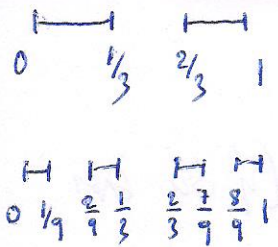 0 1/3 2/3 1
0 1/9 2/9 1/3 2/3 7/9 8/9 1